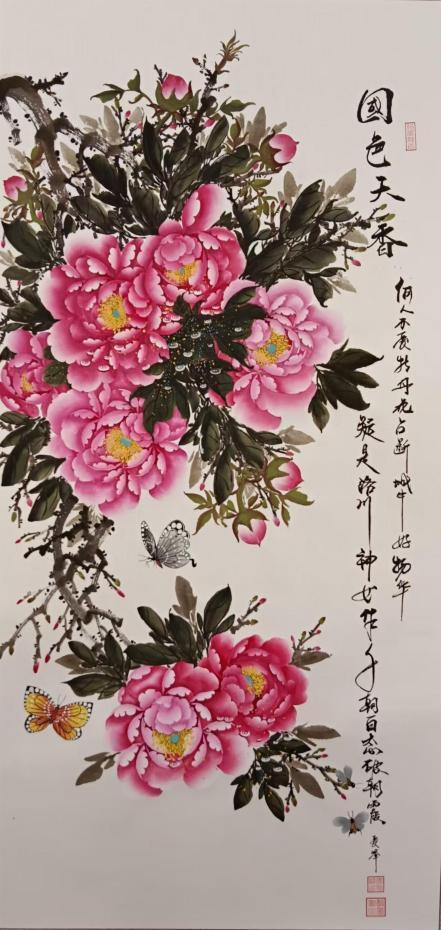 國色天香
何人不爱牡丹花占断城中好物华
疑是洛川神女作千态破朝霞